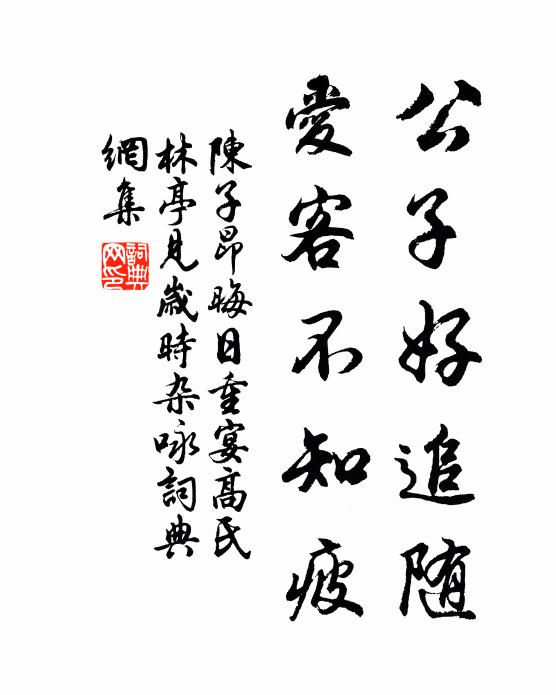 公子好追随
愛客不知疲
陳子昂晦日重宴高氏
林亭見歲時杂咏詞典
網集
詞典
网印